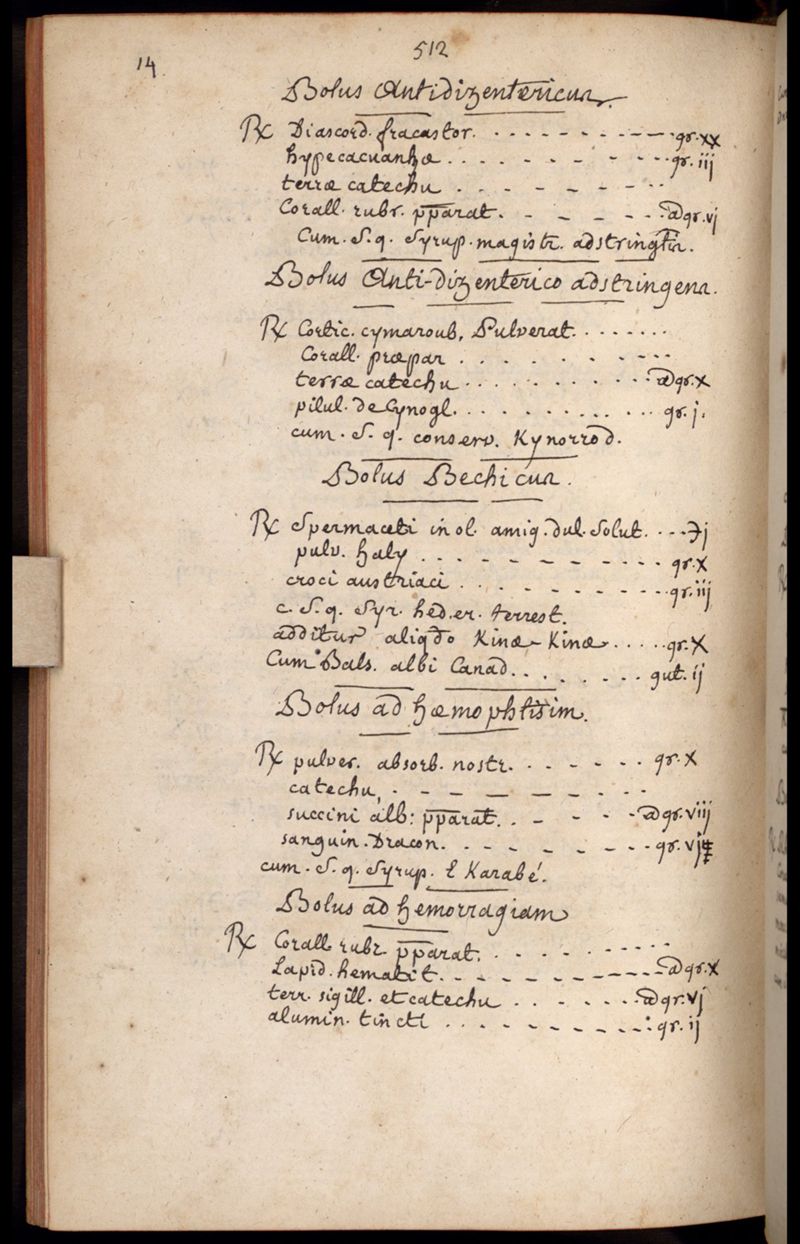 14
512
Bolus Antidizentericus
℞ Diascord. fracastor. . . . . . . . . . . gr. xx
hypecacuanhæ . . . . . . . . . . gr. iij
terræ catechu . . . . . . . .
Corall. rubr. pparat. . . . . . . . ā gr. vj
Cum. S. q. Syrup. magistr. adstringtn.
Bolus Anti-dizenterico adstringens.
℞ Cortic. cymaroub. Pulverat. . . . . . .
Corall. præpar . . . . . . . . .
terræ catechu . . . . . . . . . . ā gr. x
pilul. de Cynogl. . . . . . . . . . . gr. j.
cum. S. q. conserv. Kynorrod.
Bolus Bechicus.
℞ Spermaceti in ol. amig. dul. Solut. . . . ℈j
pulv. haly . . . . . . . . . . gr. x
croci austriaci . . . . . . . . . . gr. iij
c. S. q. Syr. hed.er. terrest.
additur aliqdo Kinæ-Kinæ . . . . . gr. x
Cum Bals. albi Canad. . . . . . . . . gut. ij
Bolus ad hæmophtisim.
℞ pulver. absorb. nostr. . . . . . . . gr. x
catechu, . . . . . . . . .
succini alb: pparat. . . . . . ā gr. viij
sanguin. Dracon. . . . . . . . . gr. vj
cum. S. q. Syrup. è Karabé.
Bolus ad hemorragiam
℞ Corall rubr. pparat. . . . . . . . . . .
Lapid. hematit. . . . . . . . . . . . ā gr. x
terr. sigill. et catechu . . . . . . ā gr. vj
alumin. tincti . . . . . . . . . . : gr. ij